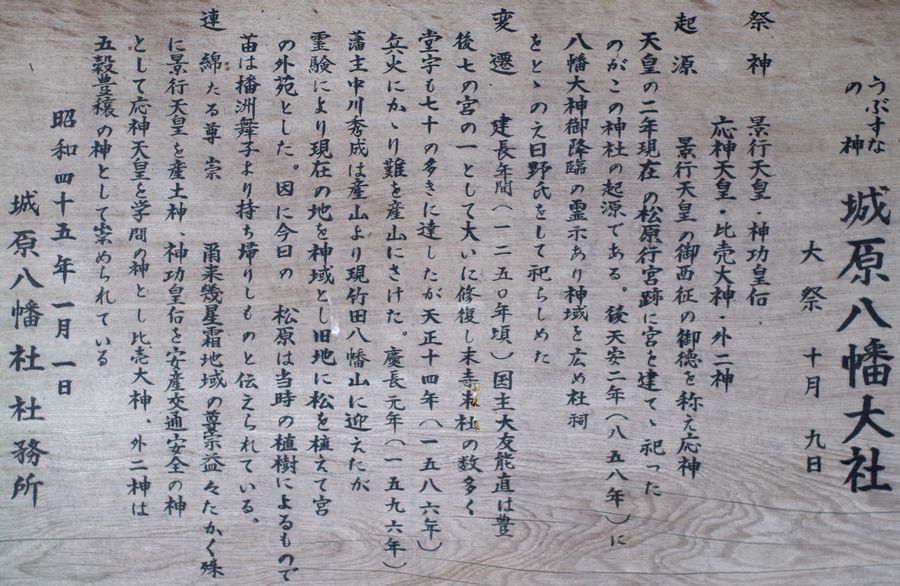 うぶすなの神
城原八幡大社
大祭 十月 九日
祭神 景行天皇・神功皇后
応神天皇・比売大神・外二神
起源 景行天皇の御西征の御徳を称え応神
天皇の二年現在の松原行宮跡に宮を建てゝ祀った
のがこの神社の起源である。後天安二年(八五八年)に
八幡大神御降臨の霊示あり神域を広め社祠
をとゝのえ日野氏をして祀らしめた
変遷 建長年間(一二五〇年頃)国主大友能直は豊
後七の宮の一として大いに修復し末寺末社の数多く
堂宇も七十の多きに達したが天正十四年(一五八六年)
兵火にかゝり難を産山にさけた。慶長元年(一五九六年)
藩主中川秀成は産山より現竹田八幡山に迎えたが
霊験により現在の地を神域とし旧地に松を植えて宮
の外苑とした。因に今日の 松原は当時の植樹によるもので
苗は播洲舞子より持ち帰りしものと伝えられている。
連綿たる尊崇 爾来幾星霜地域の尊宗益々たかく殊
に景行天皇を産土神、神功皇后を安産交通安全の神
として応神天皇を学問の神とし比売大神、外二神は
五穀豊穣の神として崇められている
昭和四十五年一月一日
城原八幡社社務所